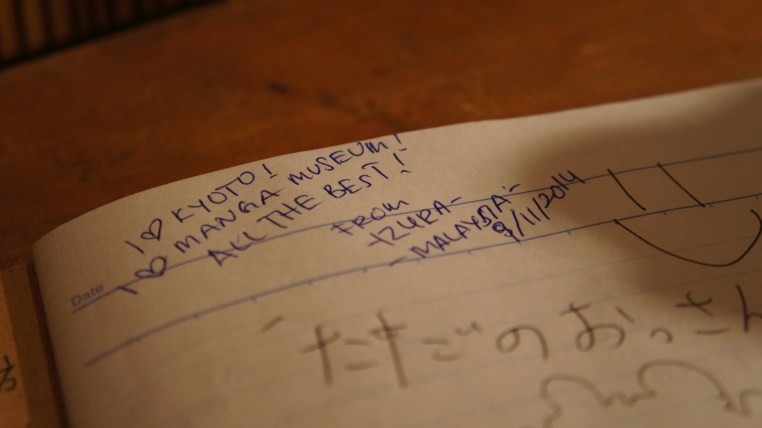 I ♡ KYOTO!
I ♡ MANGA MUSEUM!
ALL THE BEST!
FROM
-IZURA-
-MALAYSIA-
9/11/2014
Date
ただのおっさん